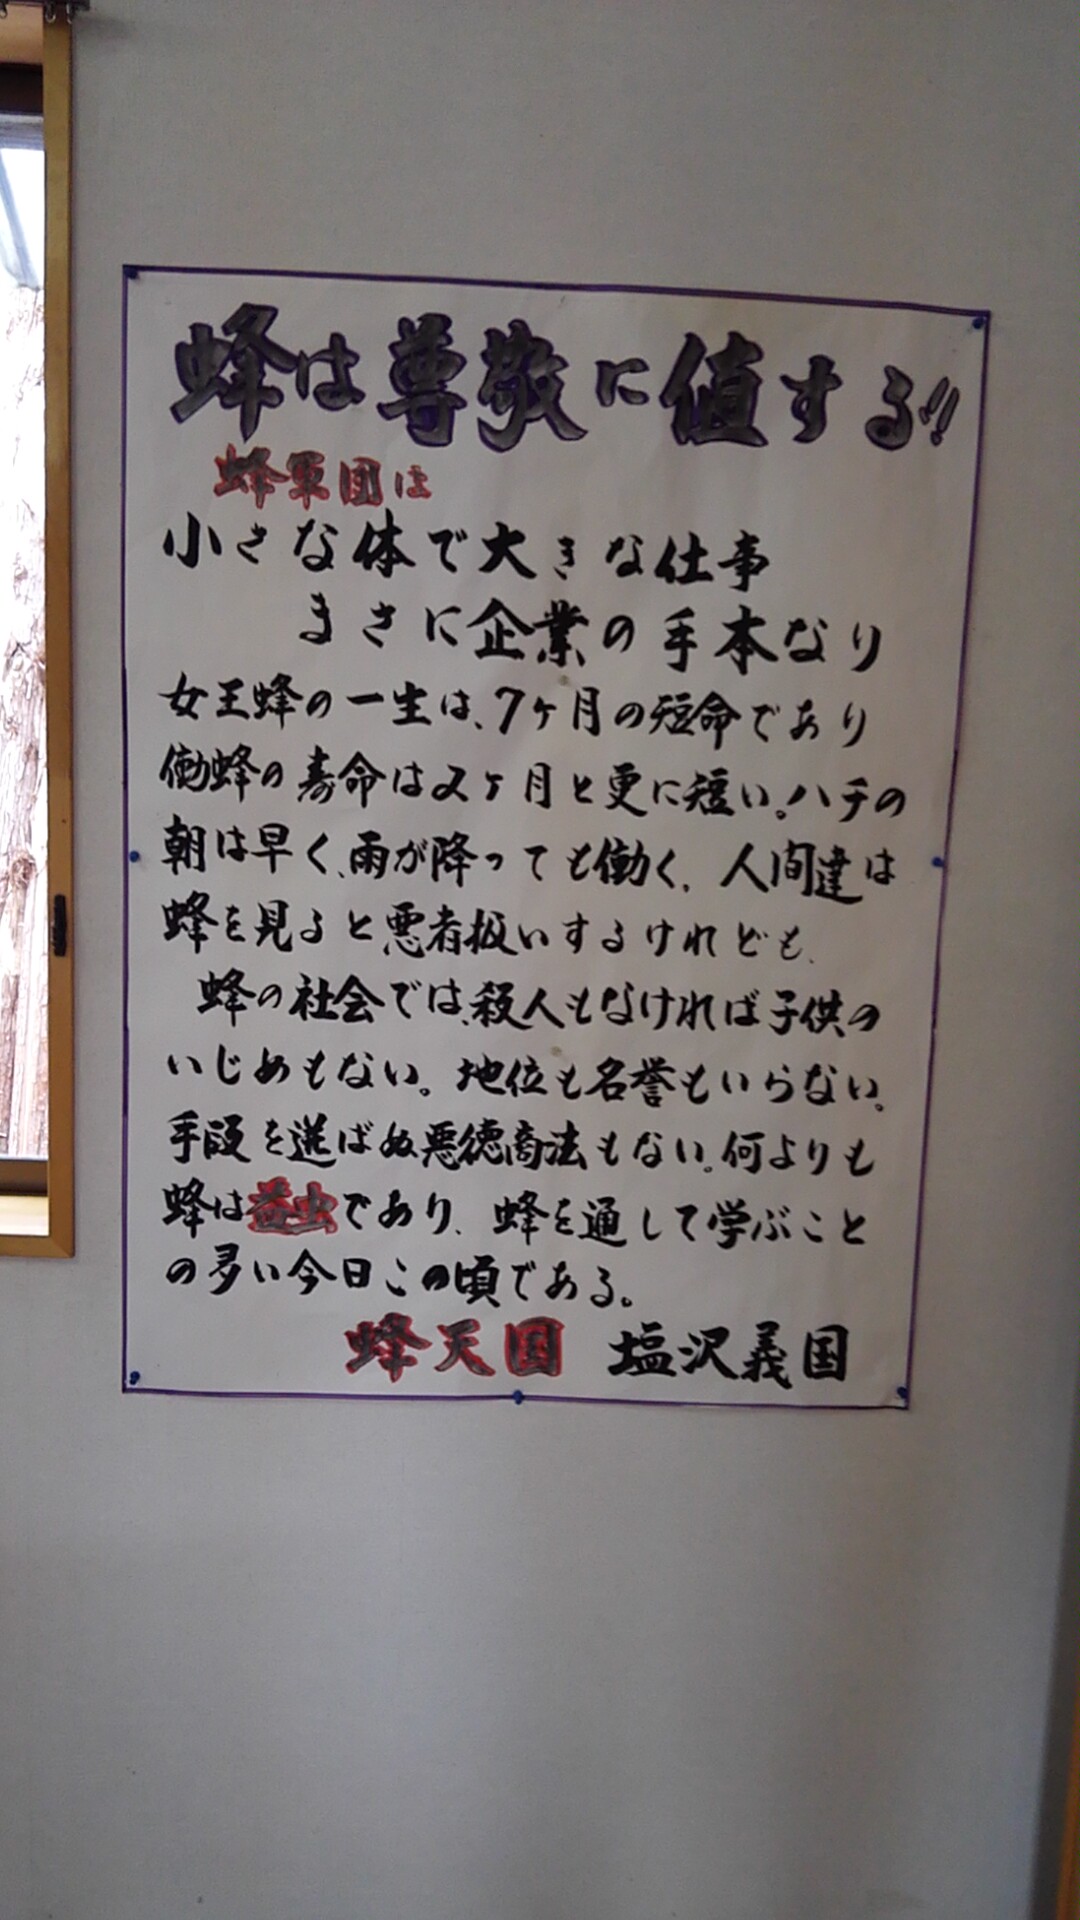 蜂は尊敬に値する!!
蜂軍団は
小さな体で大きな仕事
まさに企業の手本なり
女王蜂の一生は、7ヶ月の短命であり
働蜂の寿命は2ヶ月と更に短い。ハチの
朝は早く、雨が降っても働く、人間達は
蜂を見ると悪者扱いするけれども、
蜂の社会では、殺人もなければ子供の
いじめもない。地位も名誉もいらない。
手段を選ばぬ悪徳商法もない。何よりも
蜂は益虫であり、蜂を通して学ぶこと
の多い今日この頃である。
蜂天国 塩沢義国